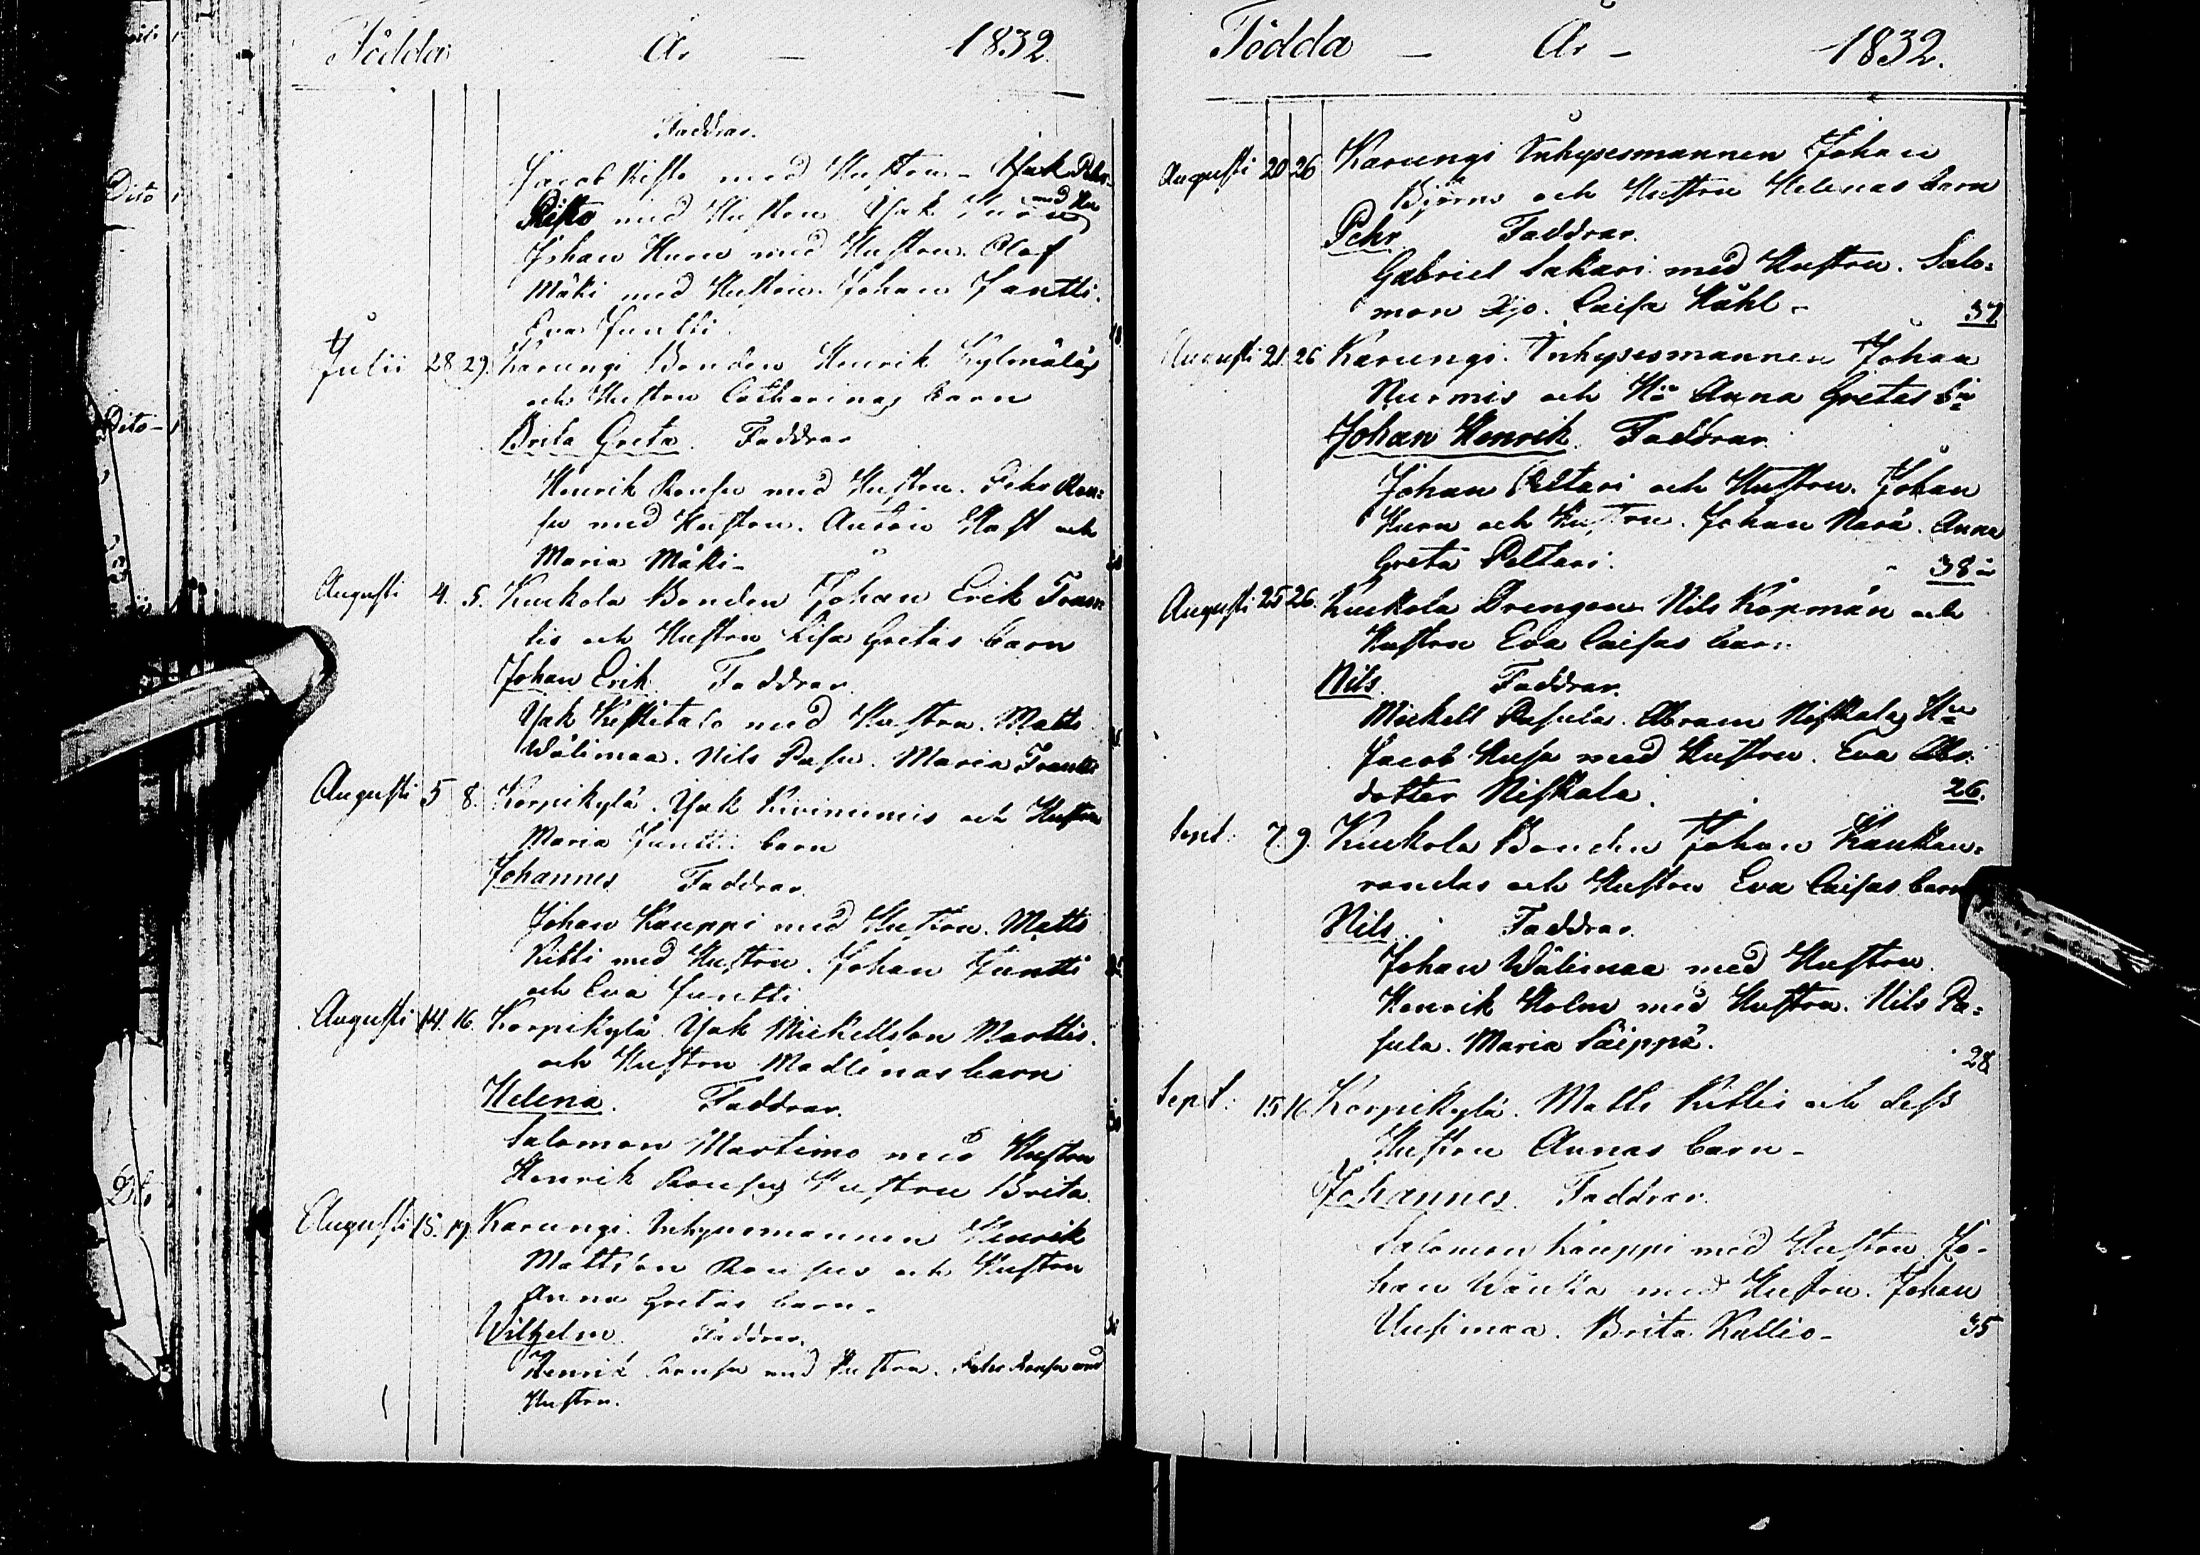 Födda År 1832.
Faddrar.
Jacob Risto med Hustru - Isak Pehr-
Risto med Hustru Isak med Hu
Johan Kuru med Hustru. Olof
Mäki med Hustru. Johan Juntti.
Eva Juntti.
Julii 28 29. Karungi Bonden Henrik Kylmäläs
och Hustru Catharinas barn
Brita Greta. Faddrar
Henrik Rousu med Hustru. Pehr Rou-
su med Hustru. och
Maria Mäki-
Augusti 4. 5. Kuckola Bonden Johan Erik
tis och Hustru Lisa Gretas barn
Johan Erik Faddrar.
Isak Keskitalo med Hustru. Matts
Wälimaa. Nils Pasu. Maria
Augusti 5 8. Korpikylä. Isak Kiviniemis och Hustru
Maria Junttis barn
Johannes Faddrar.
Johan Kauppi med Hustru. Matts
Kitti med Hustru. Johan Juntti
och Eva Juntti
Augusti 14. 16. Korpikylä Isak Mickellson Marttis.
och Hustru Madlenas barn
Helena. Faddrar.
Salomon Martimo med Hustru
Henrik Rousus Hustru Brita.
Augusti 15. 19. Karungi. Inhysesmannen Henrik
Mattson Rousus och Hustru
Anna Gretas barn.
Wilhelm Faddrar.
Henrik Rousu med Hustru. Pehr Rousu med
Hustru.
Födda - År - 1832.
Augusti 20 26 Karungi Inhysesmannen Johan
Björns och Hustru Helenas barn
Pehr Faddrar.
Gabriel Sakari med Hustru. Salo-
mon Caisa Ståhl - 37
Augusti 21. 26 Karungi. Inhysesmannen Johan
Nurmis och Hu Anna Gretas bn
Johan Henrik. Faddrar
Johan Peltari och Hustru. Johan
Kuru och Hustru. Johan Narä. Anna
Greta Peltari. 38
Augusti 25 26. Kuckola Drengen Nils Kopmän och
Hustru Eva Caisas barn
Nils. Faddrar.
Mickell Pasula. Abram Niskalas Hu
Jacob Husa med Hustru. Eva Abr.
dotter Niskala. 26.
Sept: 7. 9. Kuckola Bonden Johan Kaukau-
randas och Hustru Eva Caisas barn
Nils. Faddrar.
Johan Wälimaa med Hustru.
Henrik Holm med Hustru. Nils Pa-
sula. Maria Säippä. 28
Sept: 15 16 Korpikylä. Matts Kittis och dess
Hustru Annas barn -
Johannes. Faddrar.
Salomon Kauppi med Hustru. Jo-
han Wänkä med Hustru. Johan
Uusimaa. Brita Kallio - 35